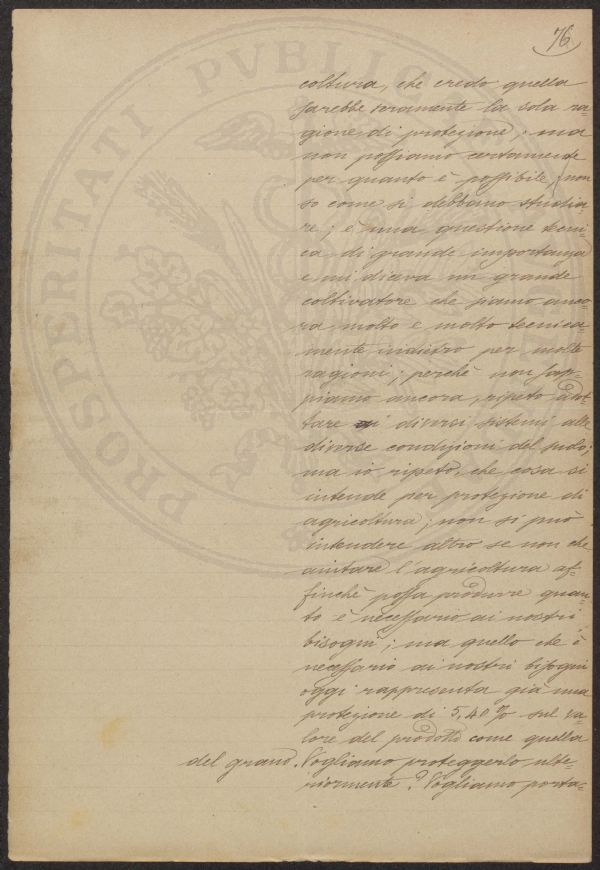 76
coltura, che credo quella
sarebbe veramente la sola ra=
gione, di protezione; ma
non possiamo certamente
per quanto è possibile, non
so come si debbano studia=
re; è una questione tecni=
ca, di grande importanza
e mi diceva un grande
coltivatore che siamo anco=
ra molto e molto tecnica=
mente indietro per molte
ragioni; perchè non sap=
piamo ancora, ripeto, adat=
tare i diversi sistemi alle
diverse condizioni del suolo;
ma io ripeto, che cosa si
intende per protezione di
agricoltura; non si può
intendere altro se non che
aiutare l'agricoltura af=
finchè possa produrre quan=
to è necessario ai nostri
bisogni; ma quello che è
necessario ai nostri bisogni
oggi rappresenta già una
protezione di 5,40 % sul va=
lore del prodotto come quella
del grano. Vogliamo proteggerlo ulte=
riormente? Vogliamo porta=
PROSPERITATI PVBLICAE